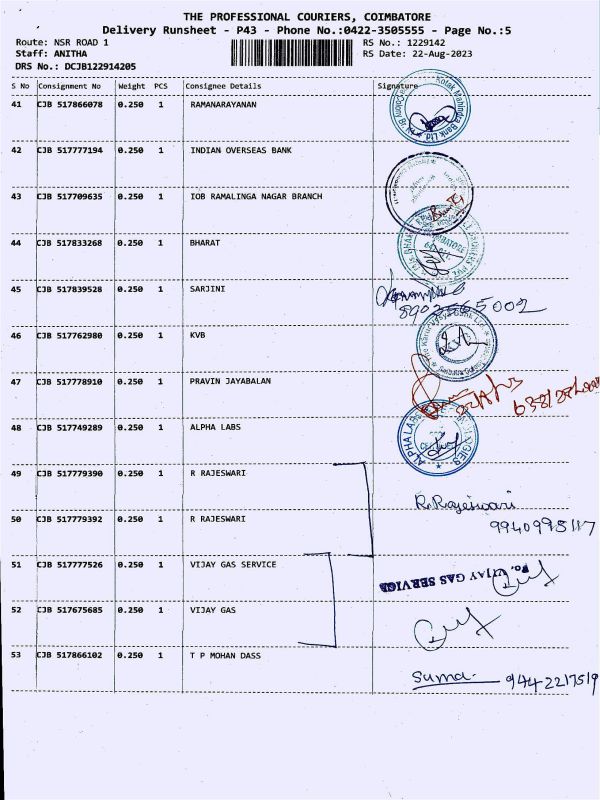 THE PROFESSIONAL COURIERS, COIMBATORE
Delivery Runsheet - P43 - Phone No.:0422-3505555 - Page No.:5
Route: NSR ROAD 1 RS No.: 1229142
Staff: ANITHA RS Date: 22-Aug-2023
DRS No.: DCJB122914205
S No Consignment No Weight PCS Consignee Details Signature
41 CJB 517866078 0.250 1 RAMANARAYANAN
Kotak Mahindra Bank Ltd
42 CJB 517777194 0.250 1 INDIAN OVERSEAS BANK
43 CJB 517709635 0.250 1 IOB RAMALINGA NAGAR BRANCH
44 CJB 517833268 0.250 1 BHARAT
45 CJB 517839528 0.250 1 SARJINI
46 CJB 517762980 0.250 1 KVB
47 CJB 517778910 0.250 1 PRAVIN JAYABALAN
48 CJB 517749289 0.250 1 ALPHA LABS
ALPHA LABS
49 CJB 517779390 0.250 1 R RAJESWARI
R. Rajeswari
50 CJB 517779392 0.250 1 R RAJESWARI
9940995117
51 CJB 517777526 0.250 1 VIJAY GAS SERVICE
Fo. VIJAY GAS SERVICE
52 CJB 517675685 0.250 1 VIJAY GAS
53 CJB 517866102 0.250 1 T P MOHAN DASS
Suma 9442217519